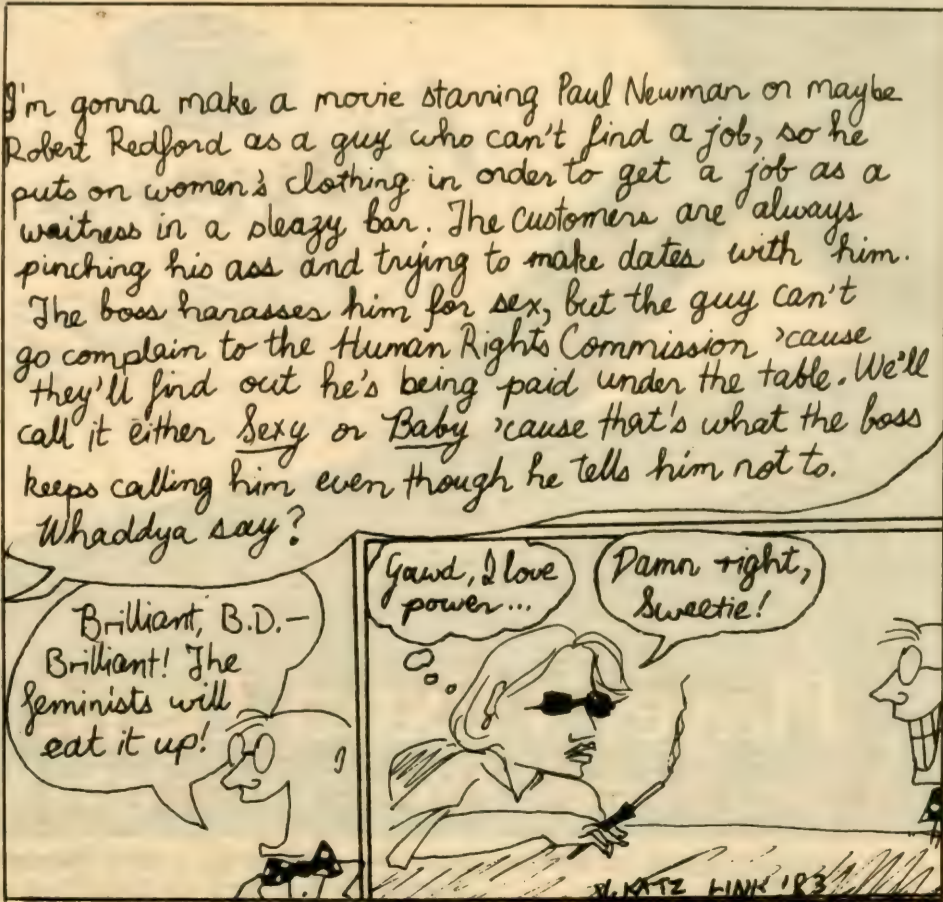 I'm gonna make a movie starring Paul Newman or maybe
Robert Redford as a guy who can't find a job, so he
puts on women's clothing in order to get a job as a
waitress in a sleazy bar. The customers are always
pinching his ass and trying to make dates with him.
The boss harasses him for sex, but the guy can't
go complain to the Human Rights Commission 'cause
they'll find out he's being paid under the table. We'll
call it either Sexy or Baby 'cause that's what the boss
keeps calling him even though he tells him not to.
Whaddya say?
Brilliant, B.D.—
Brilliant! The
feminists will
eat it up!
Gawd, I love
power...
Damn right,
Sweetie!
KATZ LINK '83